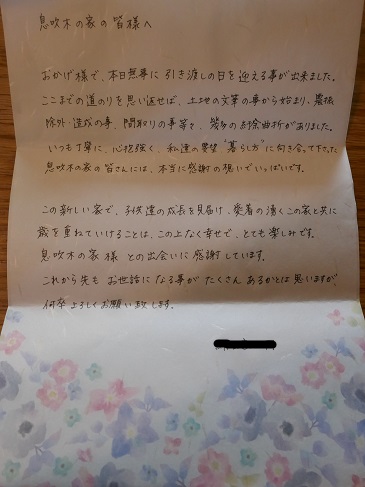 息吹木の家の皆様へ
おかげ様で、本日無事に引き渡しの日を迎える事が出来ました。
ここまでの道のりを思い返せば、土地の文筆の事から始まり、農振
除外・造成の事、間取りの事等々、幾多の紆余曲折がありました。
いつも丁寧に、心根強く、私達の要望"暮らし方"に向き合って下さった
息吹木の家の皆さんには、本当に感謝の想いでいっぱいです。
この新しい家で、子供達の成長を見届け、愛着の湧くこの家と共に
歳を重ねていけることは、この上なく幸せで、とても楽しみです。
息吹木の家様との出会いに感謝しています。
これから先もお世話になる事がたくさんあるかとは思いますが
何卒よろしくお願い致します。